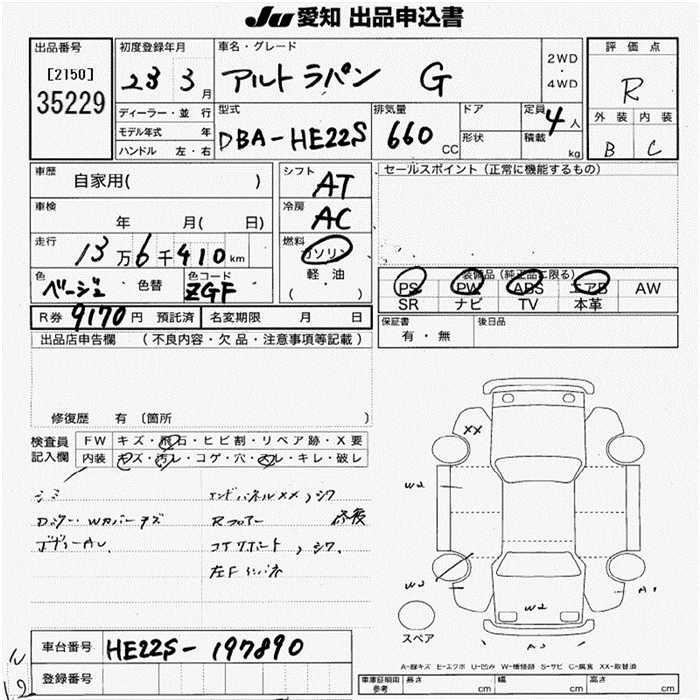 JU 愛知 出品申込書
出品番号
[2150]
35229
初度登録年月
23 3月
車名・グレード
アルト ラパン G
2WD
・
4WD
評価点
R
外装 内装
B C
ディーラー・並行
モデル年式 年
ハンドル 左・右
型式
DBA-HE22S
排気量
660 CC
ドア
形状
定員 4人
積載 kg
車歴
自家用( )
車検
年 月( 日)
走行
13万6千410km
色
ベージュ
色替
色コード
ZGF
シフト
AT
冷房
AC
燃料
ガソリン
軽油
( )
セールスポイント (正常に機能するもの)
装備品 (純正品に限る)
PS PW ABS エアB AW
SR ナビ TV 本革
R券 9170円 預託済 名変期限 月 日
保証書
有・無
後日品
出品店申告欄 (不良内容・欠品・注意事項等記載)
修復歴 有 〔箇所 〕
検査員
記入欄
FW キズ・飛石・ヒビ割・リペア跡・X要
内装 キズ・汚レ・コゲ・穴・スレ・キレ・破レ
シミ
エンドパネルXX,シワ
Rフロアー 修復
コアサポート,シワ
XX
W2
W2
W3
A1
スペア
車台番号 HE22S-197890
登録番号
A-線キズ E-エクボ U-凹み W-補修跡 S-サビ C-腐食 XX-取替済
車庫証明用
参考
長さ cm 幅 cm 高さ cm